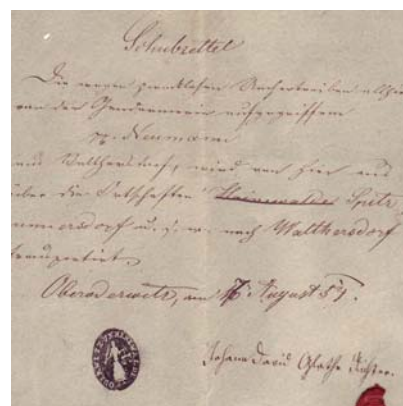 Schubzettel
Die wegen zwecklosen Umhertreiben allhier
von der Gendarmerie aufgegriffene
pp. Neumann
aus Walthersdorf, wird von hier aus
über die Ortschaften Spitz
unnersdorf u. s. w. nach Walthersdorf
transportirt.
Oberoderwitz, am 16. August 59.
Johann David Glathe Richter.